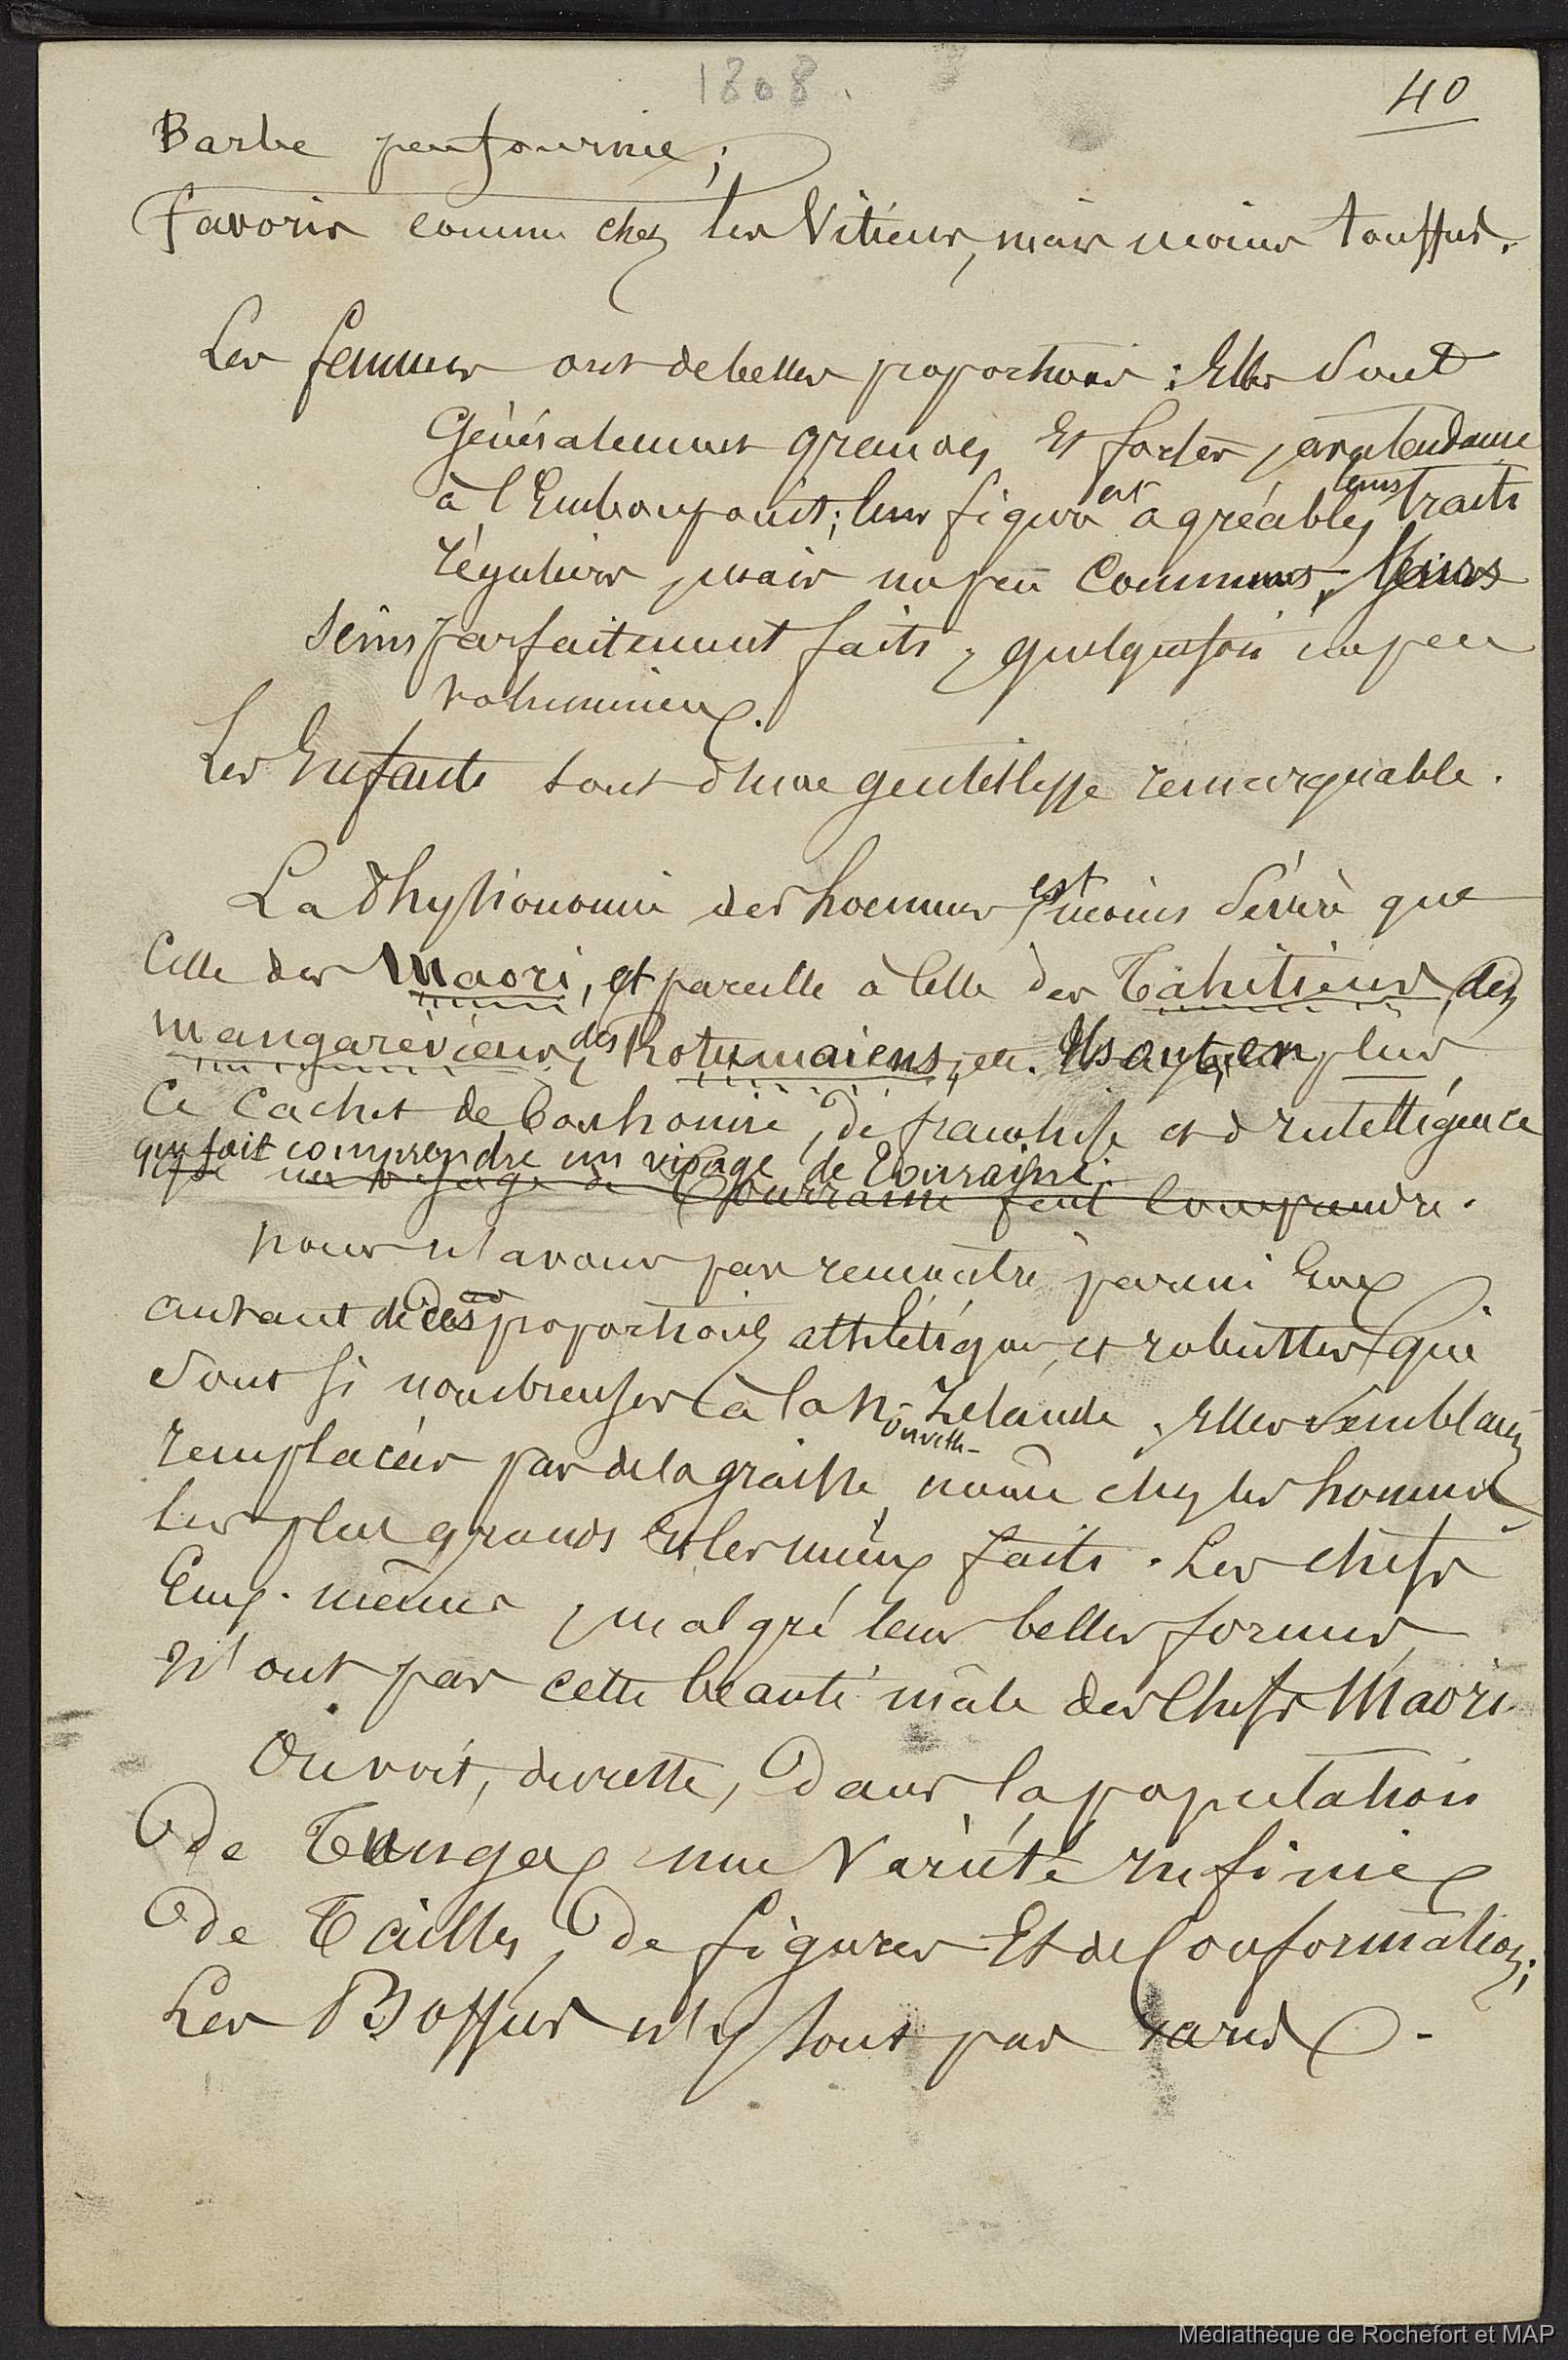 1808.
40
Barbe peu fournie;
favoris comme chez les Vitiens, mais moins touffus.
Les femmes ont de belles proportions : Elles sont
Généralement grandes Et fortes, avec tendance
à l'Embonpoint; leur figure est agréable, leurs traits
réguliers, mais un peu communs, leurs
seins parfaitement faits, quelquefois un peu
volumineux.
Les Enfants sont d'une gentillesse remarquable.
La Physionomie des hommes est moins sévère que
Celle des Maori, et pareille à celle des Tahitiens, des
mangaréviens, des Rotumaiens, etc. Ils ont, en plus
Ce Cachet de bonhomie, de franchise et d'Intelligence
qui fait comprendre un visage de Tourraine.
que un visage de Tourraine fait Comprendre.
Nous n'avons pas rencontré parmi Eux
autant de ces proportions athlétiques, et robustes qui
sont si nombreuses à la Nouvelle-Zelande. Elles semblent
remplacées par de la graisse, même chez les hommes
les plus grands Et les mieux faits. Les chefs
Eux-mêmes, malgré leurs belles formes,
N'ont pas cette beauté mâle des Chefs Maori.
On voit, du reste, Dans la population
De Tonga une Variété infinie
De Tailles, De figures Et de Conformation;
Les Bossus n'y sont pas rares -
Médiathèque de Rochefort et MAP